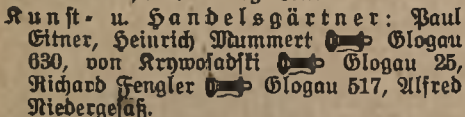 Kunst- u. Handelsgärtner: Paul
Eitner, Heinrich Mummert Glogau
630, von Krywosadski Glogau 25,
Richard Fengler Glogau 517, Alfred
Niedergesäß.